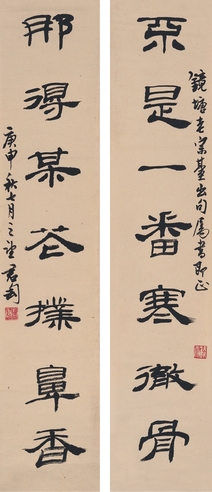 不是一番寒徹骨
鏡塘老宗臺出句屬書即正
那得某花撲鼻香
庚申秋七月之望君匋